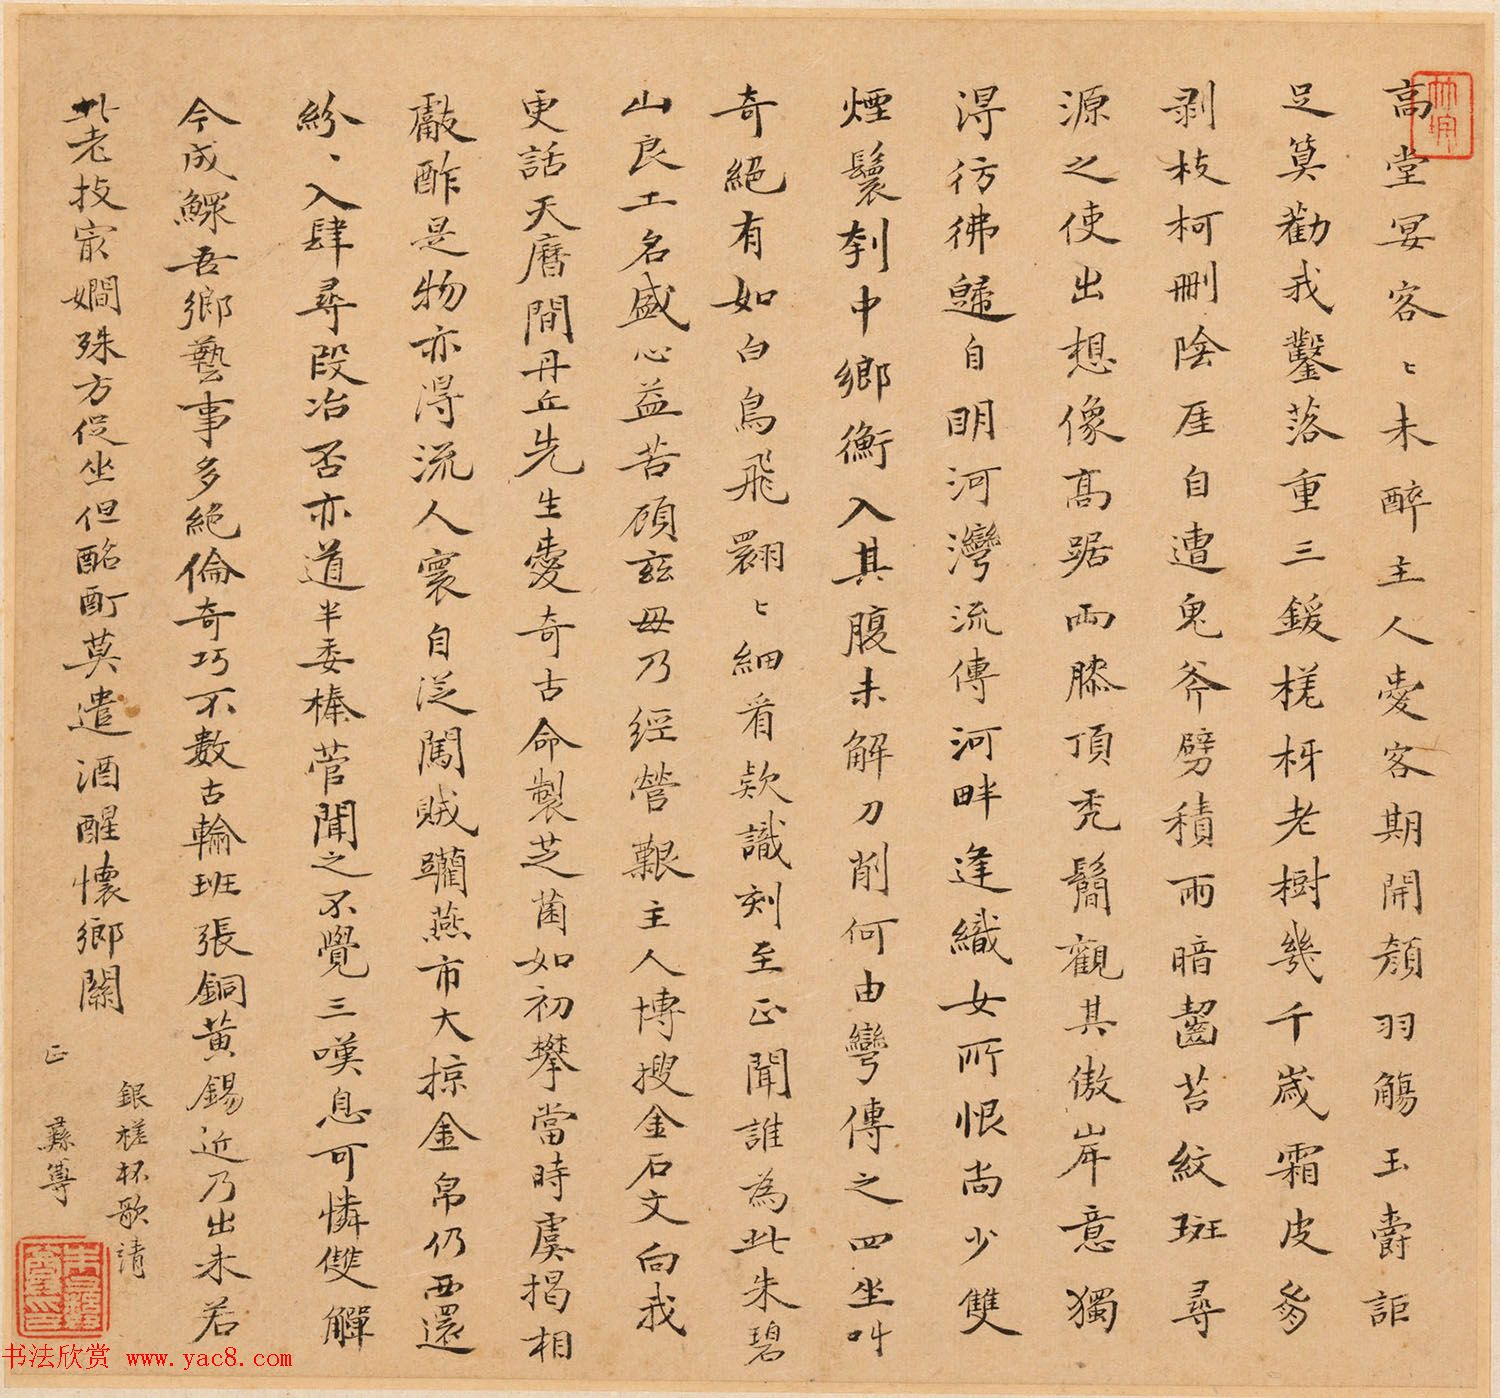 高堂宴客〻未醉主人愛客期開顏羽觴玉爵詎
足算勸我鑿落重三鍰槎枒老樹幾千歲霜皮
剥枝柯刪陰厓自遭鬼斧劈積雨暗齧苔紋斑尋
源之使出想像髙踞兩膝頂禿鬜觀其傲岸意獨
淂彷彿歸自明河灣流傳河畔逢織女所恨尚少雙
煙鬟刳中鄉衡入其腹未解刀削何由彎傳之四坐叫
奇絕有如白鳥飛翾〻細看欵識刻至正聞誰為此朱碧
山良工名盛心益苦顧茲毋乃經營艱主人博搜金石文向我
更話天曆間丹丘先生愛奇古命製芝菌如初攀當時虞揭相
酬酢是物亦淂流人寰自從闖賊躪燕市大掠金帛仍西還
紛〻入肆尋段冶否亦道半委榛菅聞之不覺三嘆息可憐雙觶
今成鰥吾鄉藝事多絕倫奇巧不數古輪班張銅黃錫近乃出未若
此老技㝡嫺殊方促坐但酩酊莫遣酒醒懷鄉關
銀槎杯歌請
正
彝尊
书法欣赏 www.yac8.com